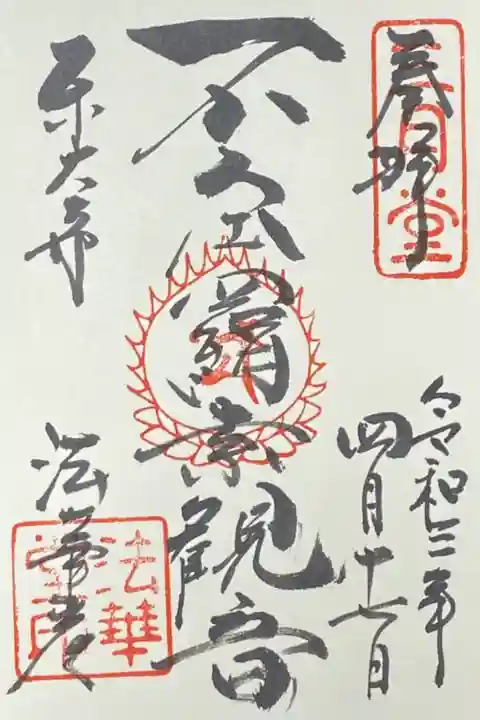 三月堂
奉拝
令和三年
四月十七日
不空羂索観音
東大寺
法華堂
法華
堂印